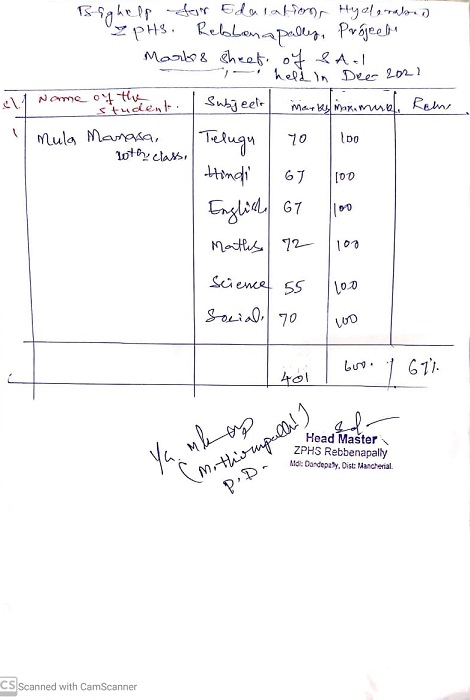 Bighelp for Education, Hyderabad
ZPHS. Rebbenapally, Project
Marks Sheet. of SA-1
held in Dec 2021
Sl. Name of the student. Subject marks Max.mark. Rem
1 Mula Manasa, Telugu 70 100
10th class,
Hindi 67 100
English 67 100
Maths 72 100
Science 55 100
Social, 70 100
401 600. 67%
(M. Thirupathi)
P.D.
Sd-
Head Master
ZPHS Rebbenapally
Mdl: Dandepally, Dist: Mancherial.
CS Scanned with CamScanner